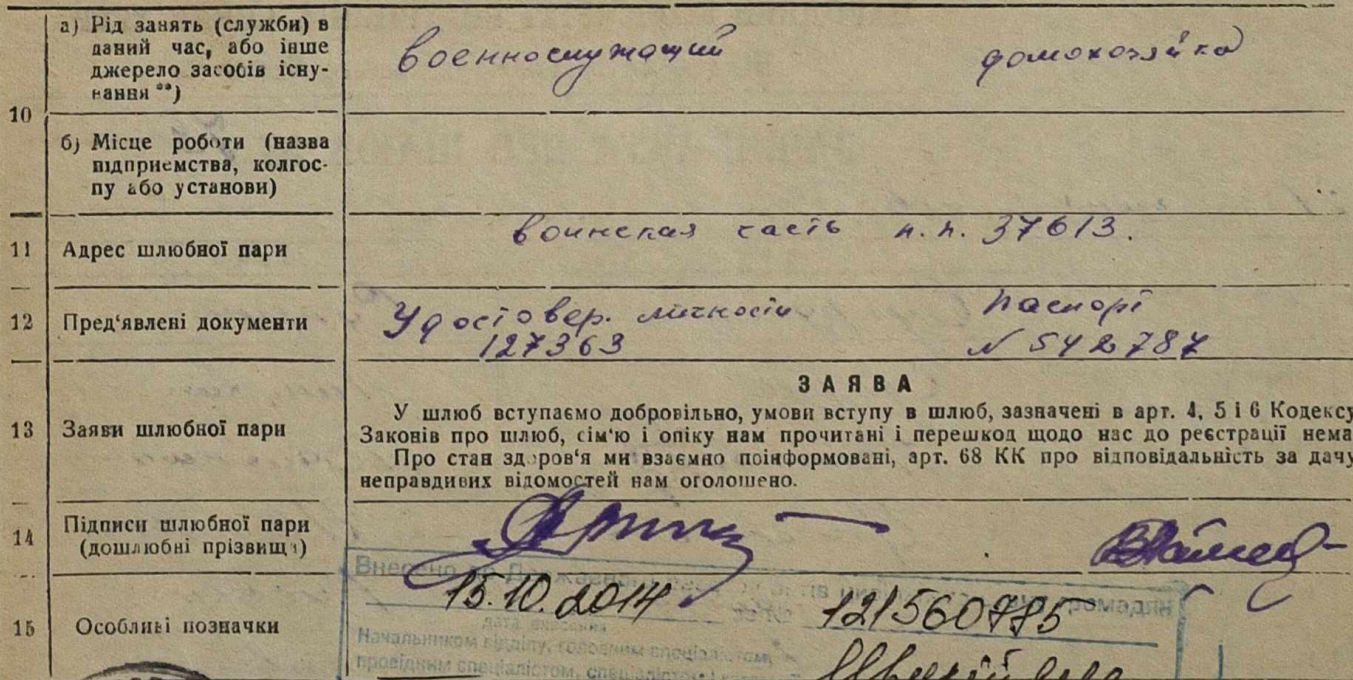 10
а) Рід занять (служби) в
даний час, або інше
джерело засобів існу-
вання **)
военнослужащий домохозяйка
б) Місце роботи (назва
підприємства, колгос-
пу або установи)
11 Адрес шлюбної пари воинская часть п.п. 37613.
12 Пред'явлені документи Удостовер. личности Паспорт
127363 № 542787
13 Заяви шлюбної пари
ЗАЯВА
У шлюб вступаємо добровільно, умови вступу в шлюб, зазначені в арт. 4, 5 і 6 Кодексу
Законів про шлюб, сім'ю і опіку нам прочитані і перешкод щодо нас до реєстрації нема
Про стан здоров'я ми взаємно поінформовані, арт. 68 КК про відповідальність за дачу
неправдивих відомостей нам оголошено.
14 Підписи шлюбної пари
(дошлюбні прізвища)
15 Особливі позначки
Внесено до громадян
15.10.2014 121560775
дата внесення
Начальником відділу, головним спеціалістом,
провідним спеціалістом, спеціалістом